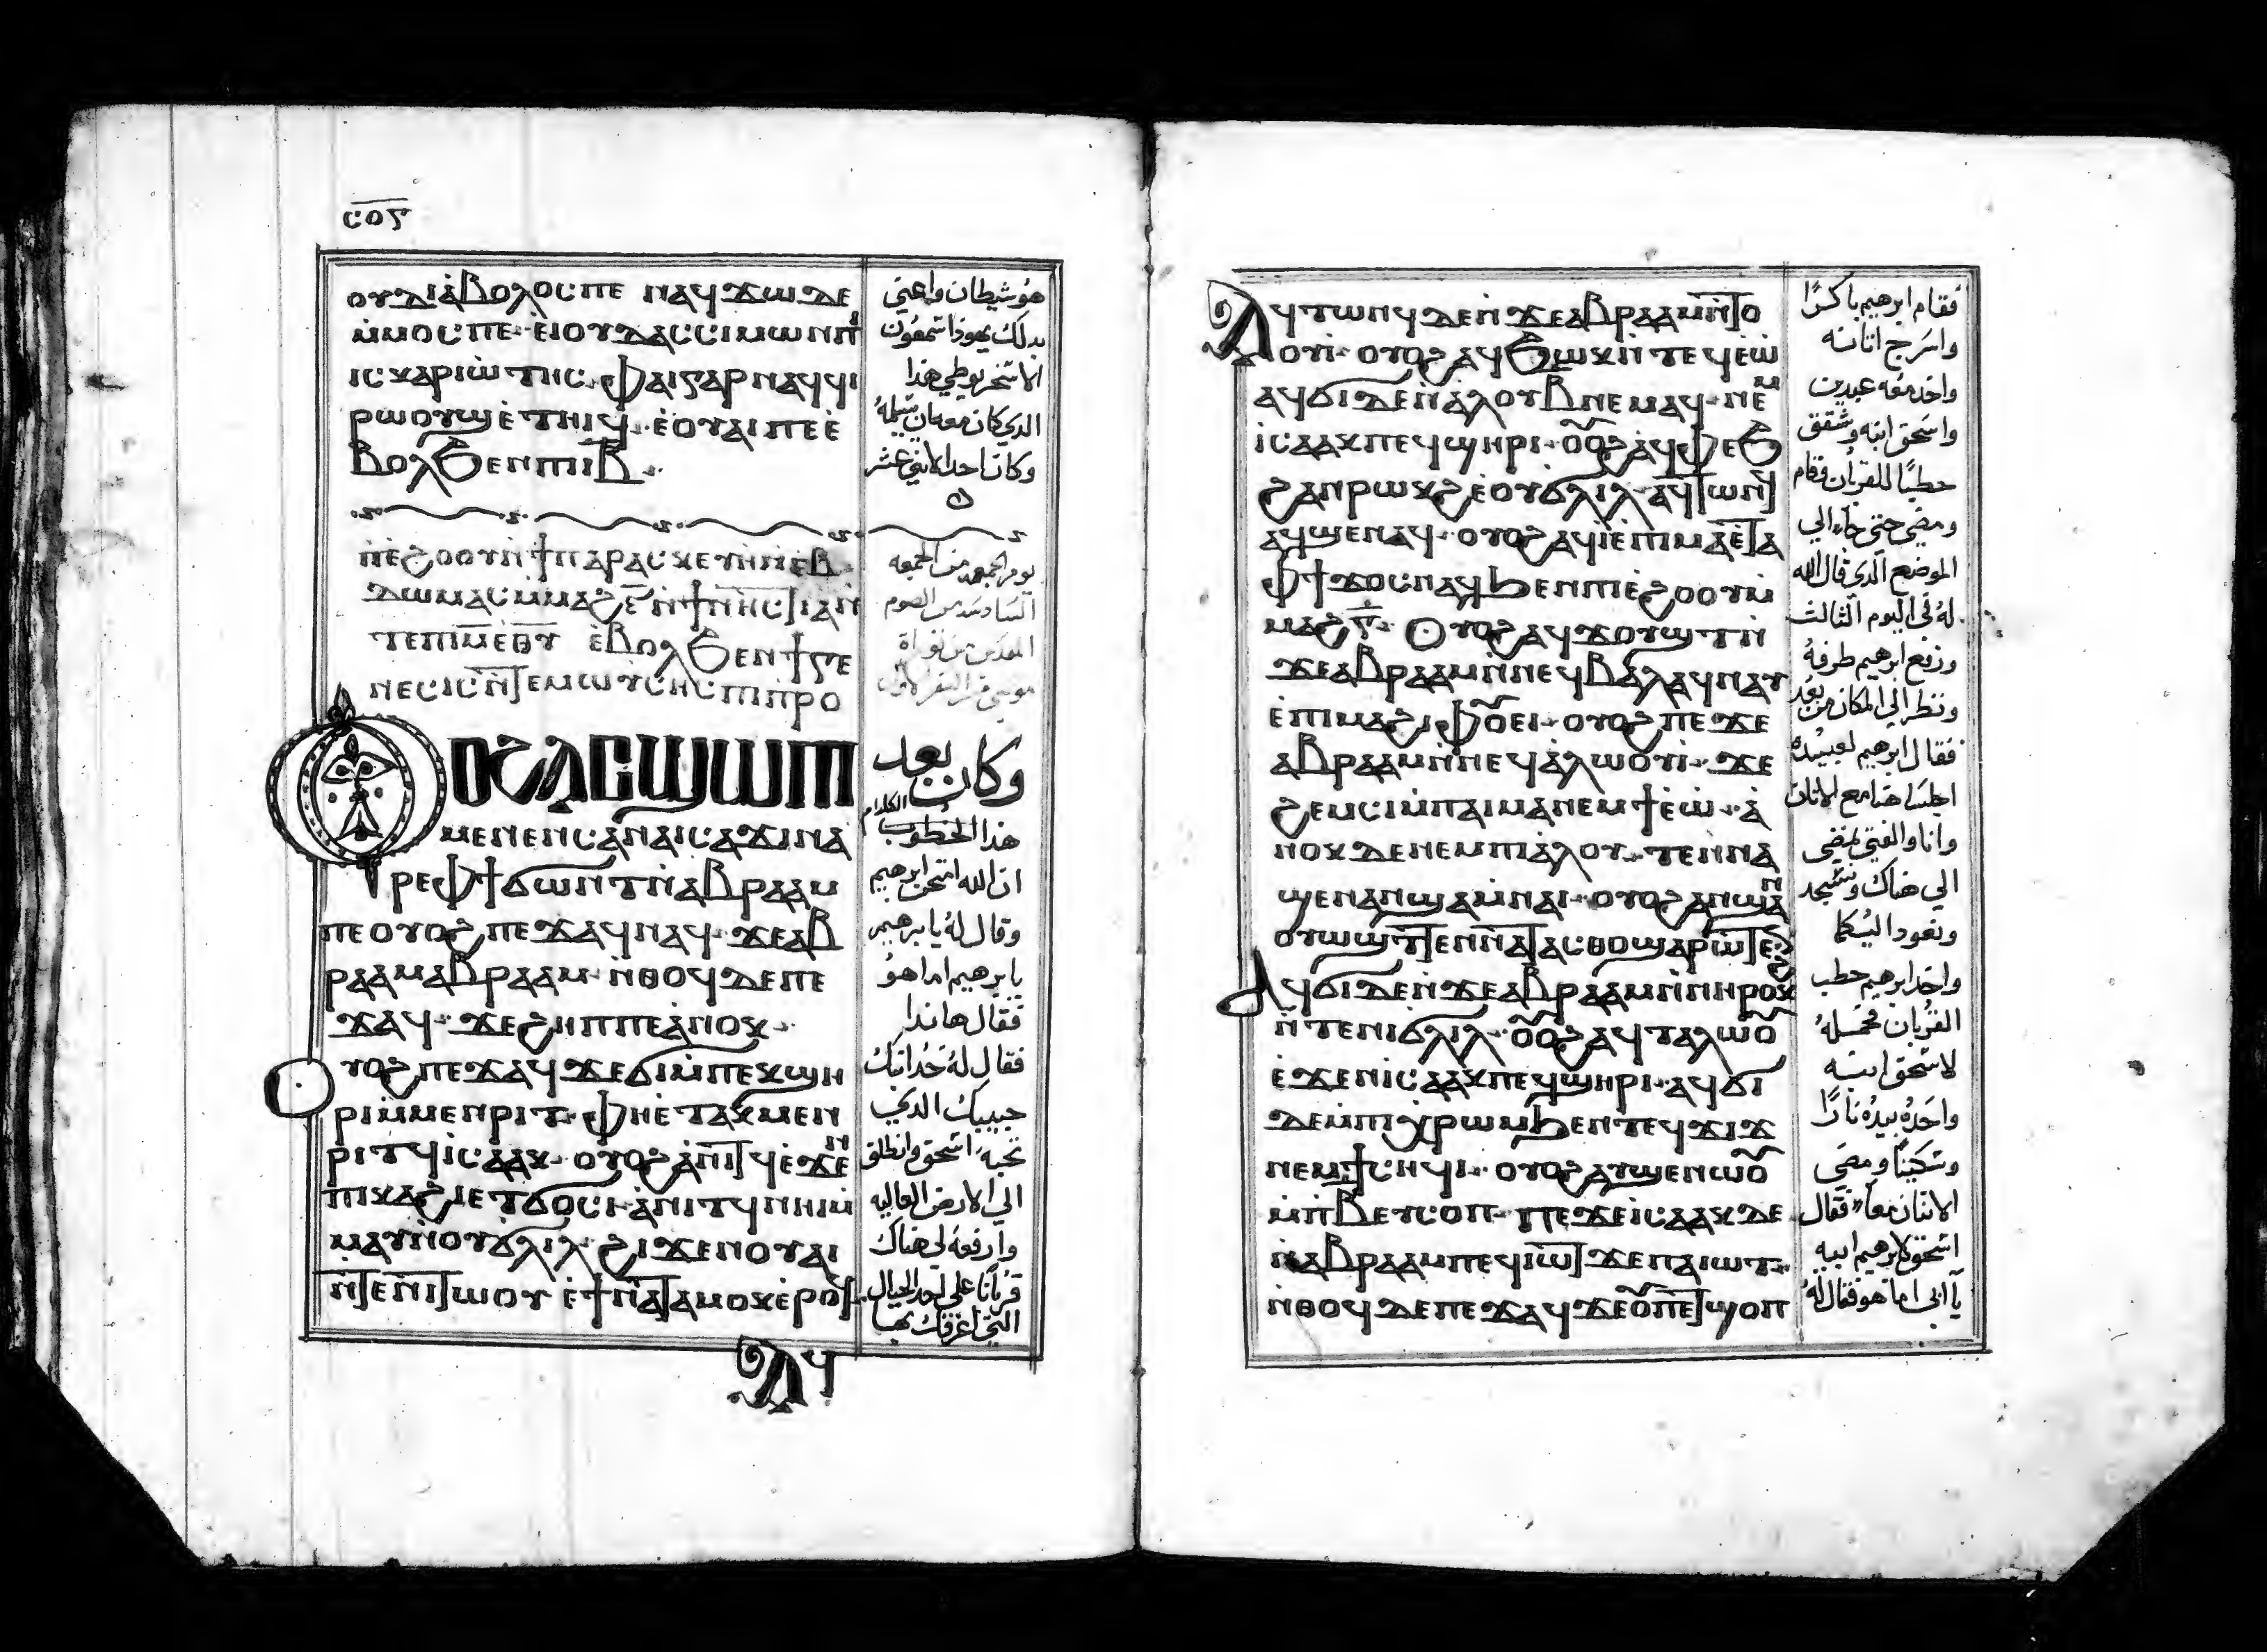 ⲥⲟⲋ
ⲟⲩⲇⲓⲁⲃⲟⲗⲟⲥⲡⲉ ⲛⲁϥϫⲱⲇⲉ
ⲙ̀ⲙⲟⲥⲡⲉ· ⲉ̀ⲓⲟⲩⲇⲁⲥⲥⲓⲙⲱⲛⲡⲓ
ⲓⲥⲕⲁⲣⲓⲱ̀ⲧⲏⲥ· ⲫⲁⲓⲅⲁⲣⲛⲁϥϥⲓ
ⲣⲱⲟⲩϣⲉ̀ⲧⲏⲓϥ· ⲉ̀ⲟⲩⲁⲓⲡⲉⲉ̀
ⲃⲟⲗϧⲉⲛⲡⲓⲓⲃ
هو شيطان واعني
بدلك يهوذا سمعون
الاسخريوطي هذا
الدي كان مهتم يسلمه
وكان احد الاثني عشر
ⲡⲉ̀ϩⲟⲟⲩⲛ̀ϯⲡⲁⲣⲁⲥⲕⲉⲩⲏⲛ̀ⲉⲃ
ⲇⲱⲙⲁⲥⲙ̀ⲙⲁϩⲋ̅ⲛ̀ϯⲛⲏⲥⲧⲓⲁⲛ̀
ⲧⲉⲡⲓⲙⲉ̅ⲑⲩ ⲉ̀ⲃⲟⲗϧⲉⲛϯⲅⲉ
ⲛⲉⲥⲓⲥⲛ̀ⲧⲉⲙⲱⲩⲥⲏⲥⲡⲓⲡ̀ⲣⲟ
يوم الجمعه من الجمعه
السادسه من الصوم
المقدس من توراة
ⲟⲩⲟϩⲁⲥϣⲱⲡⲓ
ⲙⲉⲛⲉⲛⲥⲁⲛⲁⲓⲥⲁϫⲓⲛⲁ
ⲣⲉⲫϯϭⲱⲛⲧⲛ̀ⲁⲃⲣⲁⲁⲙ
ⲡⲉⲟⲩⲟϩⲡⲉϫⲁϥⲛⲁϥ· ϫⲉⲁⲃ
ⲣⲁⲁⲙⲁⲃⲣⲁⲁⲙ· ⲛ̀ⲑⲟϥⲇⲉⲡⲉ
ϫⲁϥ· ϫⲉϩⲏⲡⲡⲉⲁ̀ⲛⲟⲕ·
ⲟⲩⲟϩⲡⲉϫⲁϥϫⲉϭⲓⲙ̀ⲡⲉⲕϣⲏ
ⲣⲓⲙ̀ⲙⲉⲛⲣⲓⲧ· ⲫⲏⲉ̀ⲧⲁⲕⲙⲉⲛ
ⲣⲓⲧϥⲓⲥⲁⲁⲕ· ⲟⲩⲟϩⲁ̀ⲛⲓⲧϥⲉ̀ϫⲉⲛ
ⲡⲓⲕⲁϩⲓⲉⲧϭⲟⲥⲓ· ⲁ̀ⲛⲓⲧϥⲛⲏⲓⲙ̀
ⲙⲁⲩⲛ̀ⲟⲩϭⲗⲓⲗ· ϩⲓϫⲉⲛⲟⲩⲁⲓ
ⲛ̀ⲧⲉⲛⲓⲧⲱⲟⲩ ⲉ̀ϯⲛⲁⲧⲁⲙⲟⲕⲉ̀ⲣⲟϥ·
ⲁϥ
وكان بعد
هذا الكلام
ان الله امتحن ابرهيم
وقال له يا ابرهيم
يا ابرهيم اما هو
فقال هاندا
فقال له خد ابنك
حبيبك الدي
تحبه اسحق وانطلق
الي الارض العاليه
وارفعه لي هناك
قربانا علي احد الجبال
التي اعرفك بها
ⲁϥⲧⲱⲛϥⲇⲉⲛ̀ϫⲉⲁⲃⲣⲁⲁⲙⲛ̀ⲧⲟ
ⲟⲩⲓ̀· ⲟⲩⲟϩⲁϥϧⲱⲕⲛ̀ⲧⲉϥⲉⲱ̀
ⲁϥϭⲓⲇⲉⲛ̀ⲁ̀ⲗⲟⲩⲃ̅ⲛⲉⲙⲁϥ· ⲛⲉⲙ
ⲓ̀ⲥⲁⲁⲕⲡⲉϥϣⲏⲣⲓ· ⲟⲩⲟϩⲁϥⲫⲉϧ
ϩⲁⲛⲣⲱⲕϩⲉ̀ⲟⲩϭⲗⲓⲗ· ⲁϥⲧⲱⲛϥ
ⲁϥϣⲉⲛⲁϥ· ⲟⲩⲟϩⲁϥⲓ̀ⲉ̀ⲡⲓⲙⲁⲉ̀ⲧⲁ
ⲫϯϫⲟⲥⲛⲁϥϧⲉⲛⲡⲓⲉ̀ϩⲟⲟⲩⲙ̀
ⲙⲁϩⲅ̅· ⲟⲩⲟϩⲁϥϫⲟⲩϣⲧⲛ̀
ϫⲉⲁⲃⲣⲁⲁⲙⲛ̀ⲛⲉϥⲃⲁⲗⲁϥⲛⲁⲩ
ⲉ̀ⲡⲓⲙⲁϩⲓⲫⲟⲩⲉⲓ· ⲟⲩⲟϩⲡⲉϫⲉ
ⲁⲃⲣⲁⲁⲙⲛ̀ⲛⲉϥⲁ̀ⲗⲱⲟⲩⲓ̀· ϫⲉ
ϩⲉⲙⲥⲓⲙ̀ⲡⲁⲓⲙⲁⲛⲉⲙϯⲉ̀ⲱ̀· ⲁ̀
ⲛⲟⲕⲇⲉⲛⲉⲙⲡⲓⲁ̀ⲗⲟⲩ· ⲧⲉⲛⲛⲁ
ϣⲉⲛⲁⲛϣⲁⲙ̀ⲛⲁⲓ· ⲟⲩⲟϩⲁⲛϣⲁⲛ
ⲟⲩⲱϣⲧⲧⲉⲛⲛⲁⲧⲁⲥⲑⲟϣⲁⲣⲱⲧⲉⲛ
ⲁϥϭⲓⲇⲉⲛ̀ϫⲉⲁⲃⲣⲁⲁⲙⲛ̀ⲛⲓⲣⲟⲕϩ
ⲛ̀ⲧⲉⲛⲓϭⲗⲓⲗ· ⲟⲩⲟϩⲁϥⲧⲁⲗⲱⲟⲩ
ⲉ̀ϫⲉⲛⲓ̀ⲥⲁⲁⲕⲡⲉϥϣⲏⲣⲓ· ⲁϥϭⲓ
ⲇⲉⲙ̀ⲡⲓⲭ̀ⲣⲱⲙϧⲉⲛⲧⲉϥϫⲓϫ
ⲛⲉⲙϯⲥⲏϥⲓ· ⲟⲩⲟϩⲁⲩϣⲉⲛⲱⲟⲩ
ⲙ̀ⲡⲃ̅ⲉⲩⲥⲟⲡ· ⲡⲉϫⲉⲓ̀ⲥⲁⲁⲕⲇⲉ
ⲛ̀ⲁⲃⲣⲁⲁⲙⲡⲉϥⲓⲱⲧ ϫⲉⲡⲁⲓⲱⲧ·
ⲛ̀ⲑⲟϥⲇⲉⲡⲉϫⲁϥϫⲉⲟⲩⲡⲉⲧϣⲟⲡ
فقام ابرهيم باكرًا
واسرج اتانه
واخد معه عبدين
واسحق ابنه وشقق
حطبًا للقربان فقام
ومضي حتي جاء الي
الموضع الدي قال الله
له في اليوم الثالث
ورفع ابرهيم طرفه
ونظر الي المكان من بعد
فقال ابرهيم لعبيده
اجلسا هنا مع الاتان
وانا والفتي نمضي
الي هناك ونسجد
ونعود اليكما
واخد ابرهيم حطب
القربان فحمله
لاسحق ابنه
واخد بيده نارًا
وسكينًا ومضي
الاتنان معًا فقال
اسحق لابرهيم ابيه
يا ابي اما هو فقال له